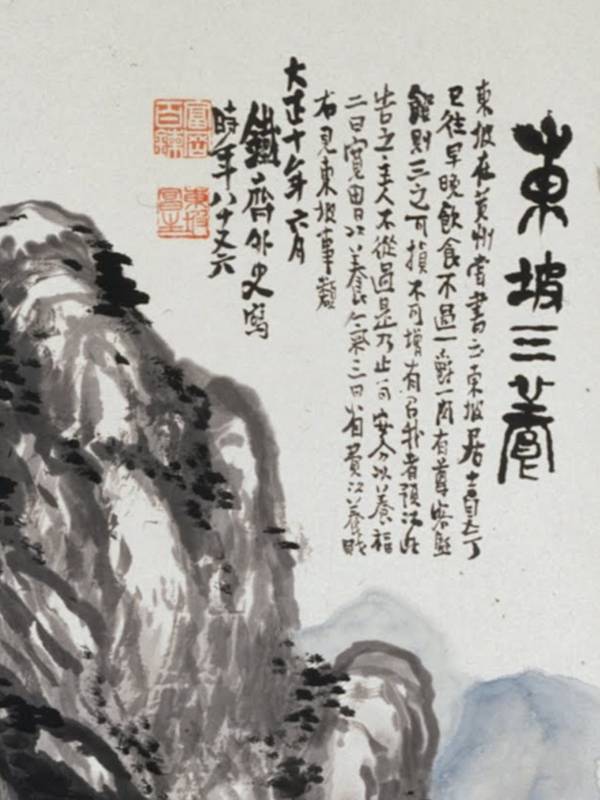 東坡三養
東坡在黃州嘗書云東坡居士自今
已往早晚飲食不過一爵一肉有尊客盛
饌則三之可損不可增有召我者預以此
告之主人不從過是乃止一曰安分以養福
二曰寬胃以養氣三曰省費以養財
右見東坡事類
大正十年六月
鐵齋外史寫
時年八十又六
東坡